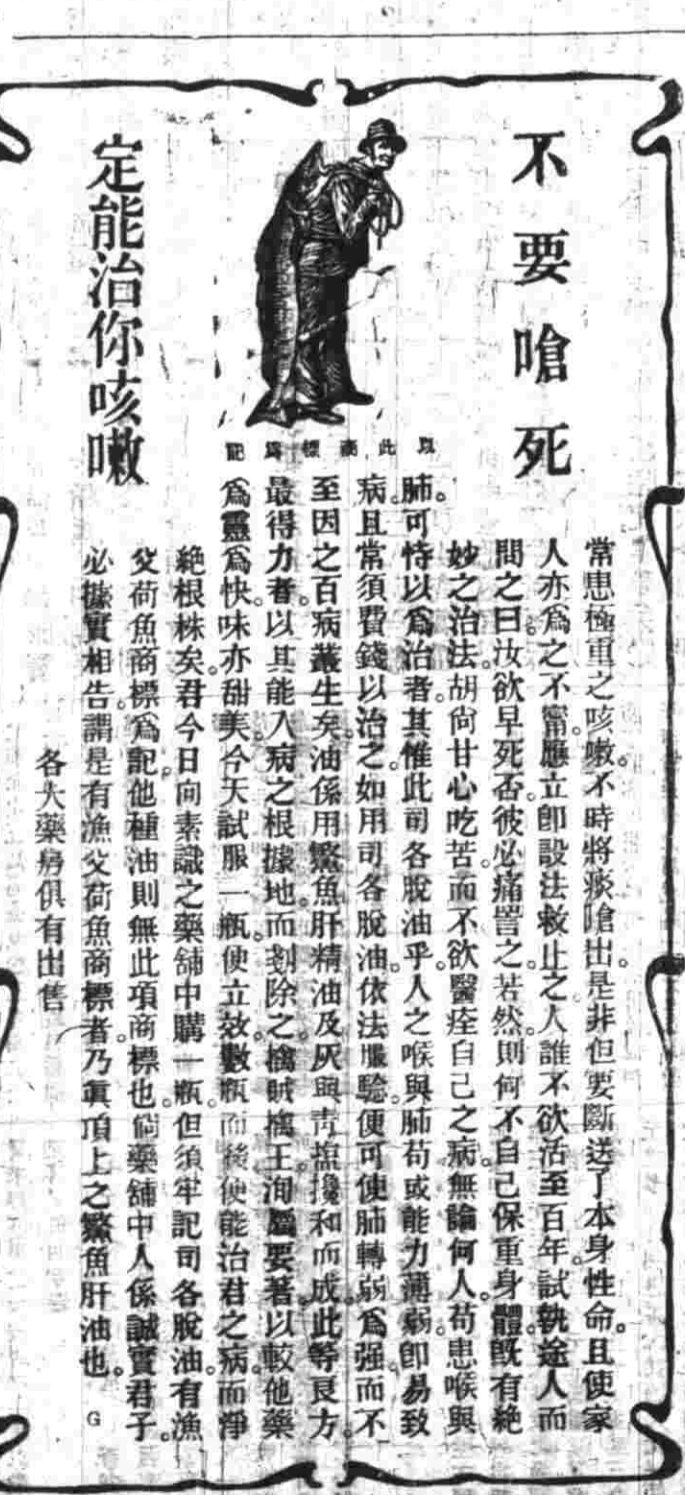 不要嗆死
以此商標爲記
定能治你咳嗽
常患極重之咳嗽。不時將痰嗆出。是非但要斷送了本身性命。且使家
人亦爲之不甯。應立卽設法救止之。人誰不欲活至百年。試執途人而
問之曰。汝欲早死否。彼必痛詈之。若然。則何不自己保重身體。旣有絕
妙之治法。胡尙甘心吃苦。而不欲醫痊自己之病。無論何人。苟患喉與
肺。可恃以爲治者。其惟此司各脫油乎。人之喉與肺苟或能力薄弱。卽易致
病。且常須費錢以治之。如用司各脫油。依法服驗。便可使肺轉弱爲强。而不
至因之百病叢生矣。油係用鰵魚肝精油及灰與靑塩攙和而成。此等良方。
最得力者。以其能入病之根據地而剗除之。擒賊擒王。洵屬要著。以較他藥
爲靈爲快。味亦甜美。今天試服一瓶。便立效。數瓶而後。便能治君之病。而淨
絕根株矣。君今日向素識之藥舖中購一瓶。但須牢記司各脫油。有漁
父荷魚商標爲記。他種油則無此項商標也。倘藥舖中人係誠實君子。
必據實相告。謂是有漁父荷魚商標者。乃眞頂上之鰵魚肝油也。 G
各大藥房俱有出售